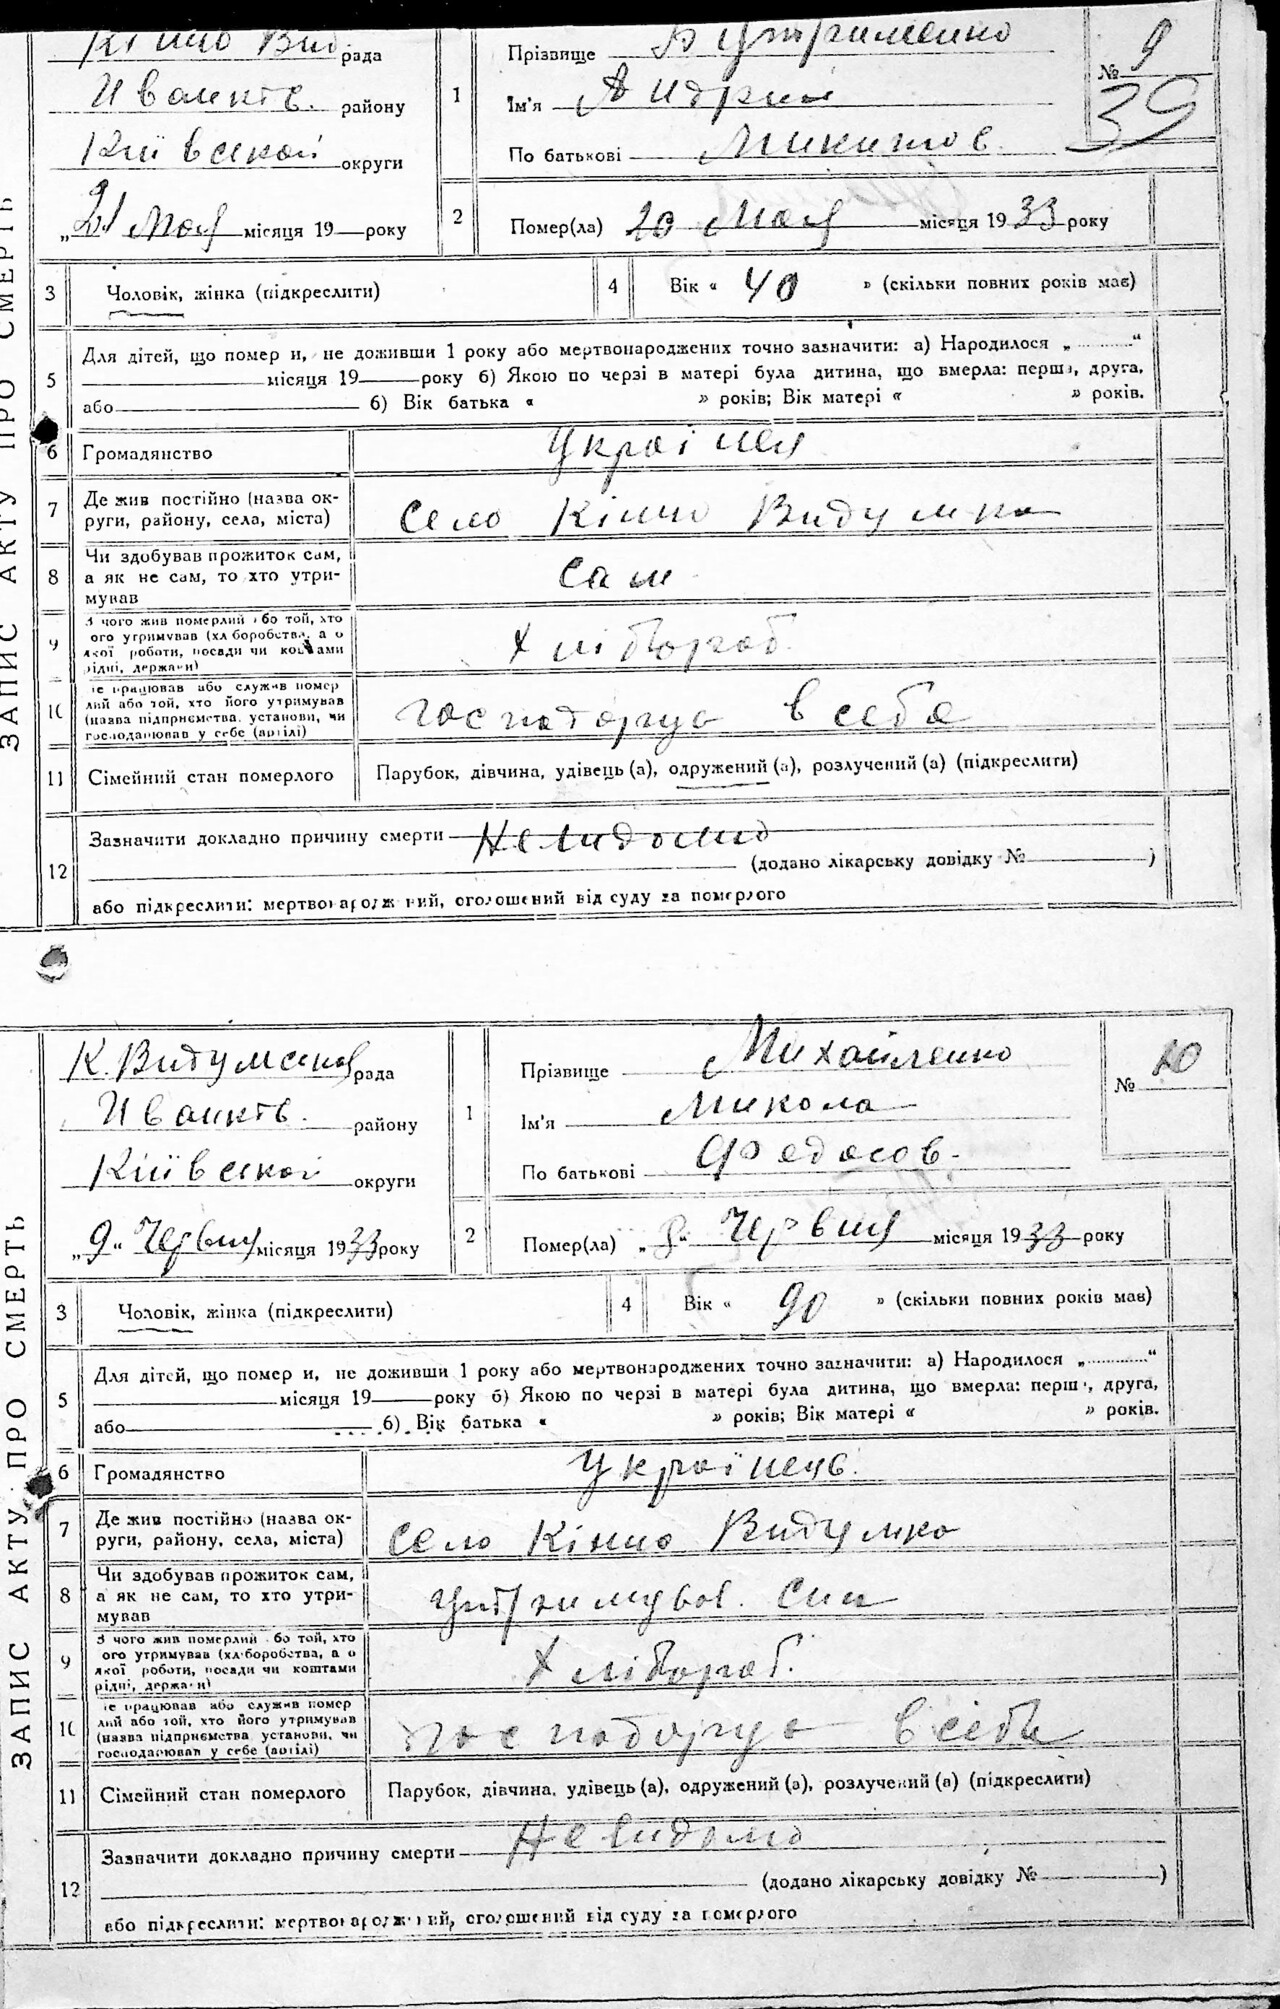 ЗАПИС АКТУ ПРО СМЕРТЬ
Кінно Вид. рада
Иванків. району
Київскои округи
„21 Мая місяця 19 року
1
Прізвище
Ім'я Андрий
По батькові Микитов.
№ 9
39
2
Помер(ла) 20 Мая місяця 1933 року
3
Чоловік, жінка (підкреслити)
4
Вік « 40 » (скільки повних років має)
5
Для дітей, що помер и, не доживши 1 року або мертвонароджених точно зазначити: а) Народилося „ “
місяця 19 року б) Якою по черзі в матері була дитина, що вмерла: перша, друга,
або б) Вік батька « » років; Вік матері « » років.
6
Громадянство
7
Де жив постійно (назва ок-
руги, району, села, міста)
село Кінно Видумка
8
Чи здобував прожиток сам,
а як не сам, то хто утри-
мував
сам
9
З чого жив померлий або той, хто
ого утримував (хл боробства, а о
якої роботи, посади чи коштами
рідні, держави)
Хлібороб.
10
е працював або служив помер
лий або той, хто його утримував
(назва підприємства, установи, чи
господарював у себе (артілі)
господорує в себе
11
Сімейний стан померлого
Парубок, дівчина, удівець (а), одружений (а), розлучений (а) (підкреслити)
12
Зазначити докладно причину смерти Невидомо
(додано лікарську довідку № )
або підкреслити: мертвонароджений, оголошений від суду за померлого
ЗАПИС АКТУ ПРО СМЕРТЬ
К. Видумсков рада
Иванків. району
Київскои округи
„9“ Червня місяця 1933 року
1
Прізвище Михайленко
Ім'я Микола
По батькові Федосов.
№ 10
2
Помер(ла) „8“ Червня місяця 1933 року
3
Чоловік, жінка (підкреслити)
4
Вік « 90 » (скільки повних років має)
5
Для дітей, що помер и, не доживши 1 року або мертвонароджених точно зазначити: а) Народилося „ “
місяця 19 року б) Якою по черзі в матері була дитина, що вмерла: перш , друга,
або б) Вік батька « » років; Вік матері « » років.
6
Громадянство
Українець.
7
Де жив постійно (назва ок-
руги, району, села, міста)
село Кінно Видумка
8
Чи здобував прожиток сам,
а як не сам, то хто утри-
мував
утримував. син
9
З чого жив померлий або той, хто
ого утримував (хліборобства, а о
якої роботи, посади чи коштами
рідні, держави)
Хлібороб.
10
е працював або служив помер
лий або той, хто його утримував
(назва підприємства, установи, чи
господарював у себе (артілі)
господорує в себе
11
Сімейний стан померлого
Парубок, дівчина, удівець (а), одружений (а), розлучений (а) (підкреслити)
12
Зазначити докладно причину смерти Невидомо
(додано лікарську довідку № )
або підкреслити: мертвонароджений, оголошений від суду за померлого